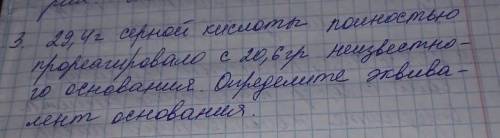 3. 29,4г серной кислоты полностью
прореагировало с 20,6гр неизвестно-
го основания. Определите эквива-
лент основания.